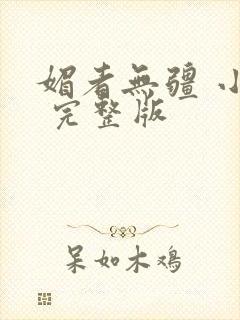 媚者無疆 小
完整版
呆如木鸡